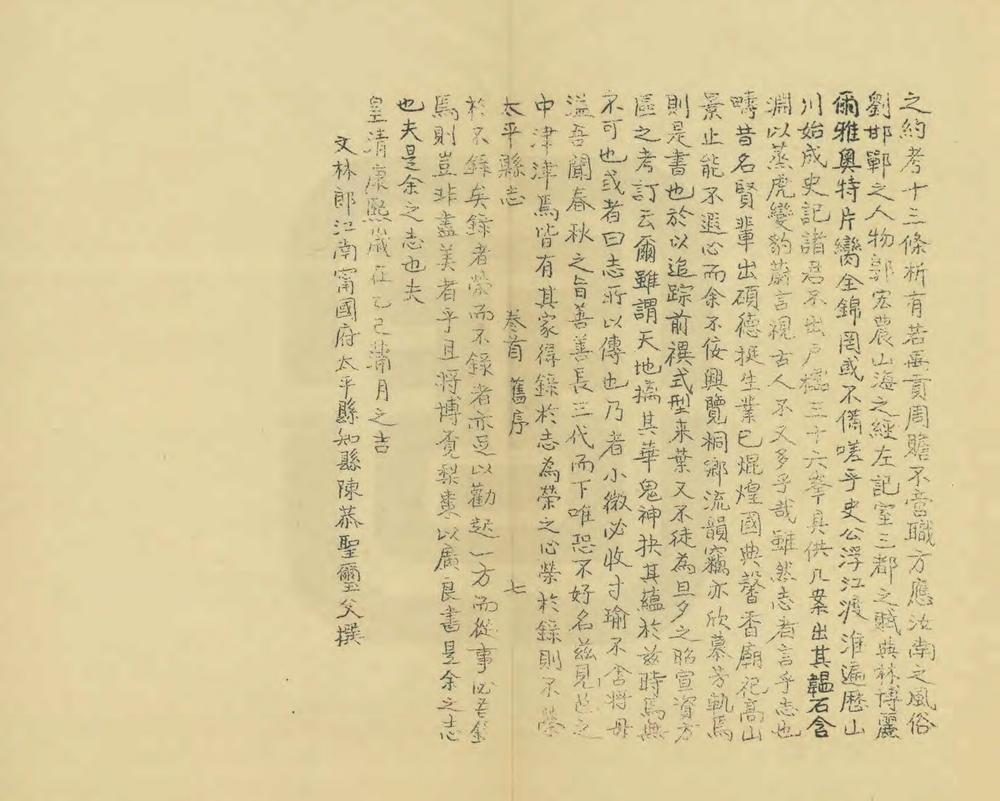 之約考十三條析有若禹貢周贍不啻職方應汝南之風俗
劉邯鄲之人物郭宏農山海之經左記室三都之賦典林博麗
爾雅奧特片臠全錦罔或不備嗟乎史公浮江渡淮遍歷山
川始成史記諸君不出戶樞三十六峯具供几案出其韞石含
淵以蒸虎變豹蔚言視古人不又多乎哉雖然志者言乎志也
疇昔名賢輩出碩德挺生業已焜煌國典馨香廟祀高山
景止能不遐心而余不佞興覽桐鄉流韻竊亦欣慕芳軌焉
則是書也於以追踪前禩式型來葉又不徒為旦夕之昭宣資方
區之考訂云爾雖謂天地擒其華鬼神抉其蘊於茲時焉無
不可也或者曰志所以傳也乃者小微必收寸瑜不舍將毋
溢吾聞春秋之旨善善長三代而下唯恐不好名茲見邑之
中津津焉皆有其家得錄於志為榮之心榮於錄則不榮
太平縣志 卷首 舊序 七
於不錄矣錄者榮而不錄者亦足以勸起一方而從事必吾錄
焉則豈非盡美者乎且將博覓梨棗以廣良書是余之志
也夫是余之志也夫
皇清康熙歲在乙己蒲月之吉
文林郎江南甯國府太平縣知縣陳恭聖璽父撰